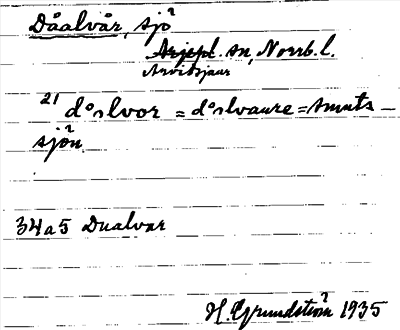 Dåalvår, sjö
Arjepl. sn, Norrb. l.
Arvidsjaur
21 dₒslvor = dₒslvaure = smuts-
sjön
34a5 Dualvar
H. Grundström 1935